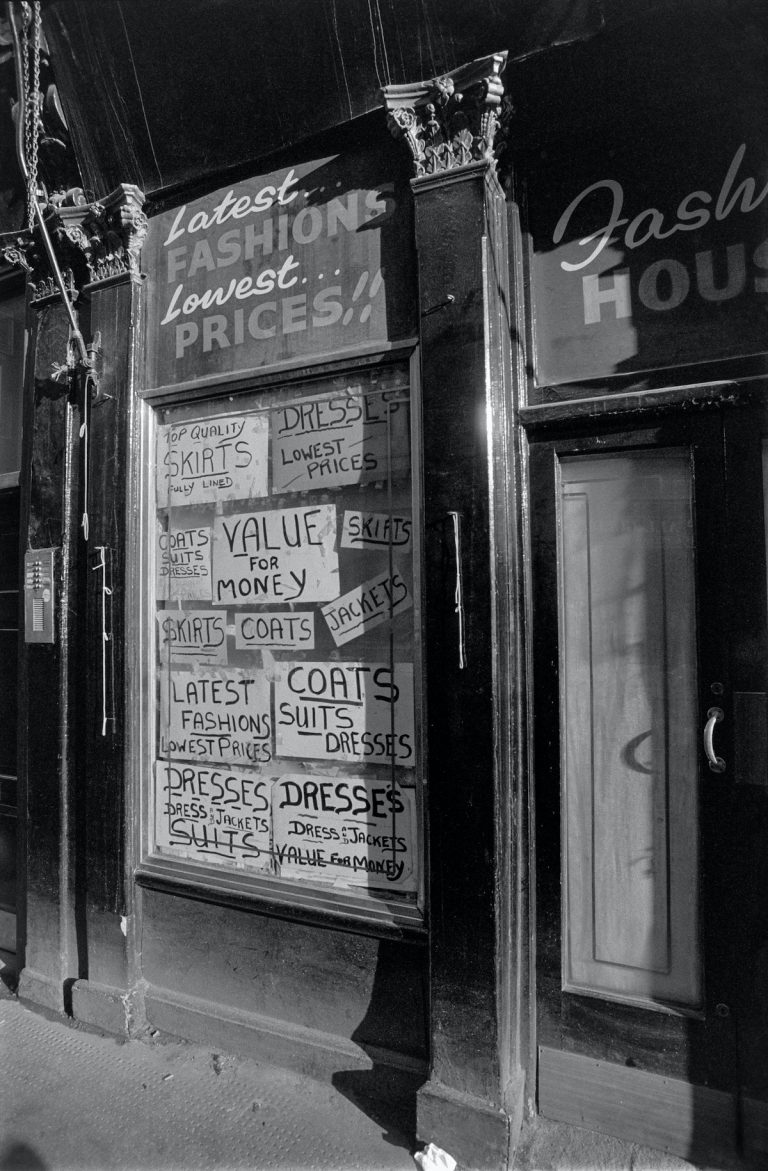 Latest...
FASHIONS
Lowest...
PRICES!!
Fash
HOUS
TOP QUALITY
SKIRTS
FULLY LINED
DRESSES
LOWEST
PRICES
COATS
SUITS
DRESSES
VALUE
FOR
MONEY
SKIRTS
SKIRTS
COATS
JACKETS
LATEST
FASHIONS
LOWEST PRICES
COATS
SUITS
DRESSES
DRESSES
DRESS AND JACKETS
SUITS
DRESSES
DRESS AND JACKETS
VALUE FOR MONEY